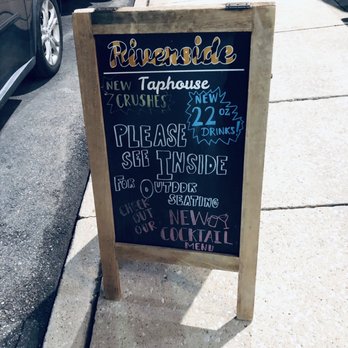 Riverside
Taphouse
NEW
CRUSHES
NEW
22 oz
DRINKS!
PLEASE
SEE INSIDE
FOR OUTDOOR
SEATING
CHECK
OUT
OUR
NEW
COCKTAIL
MENU